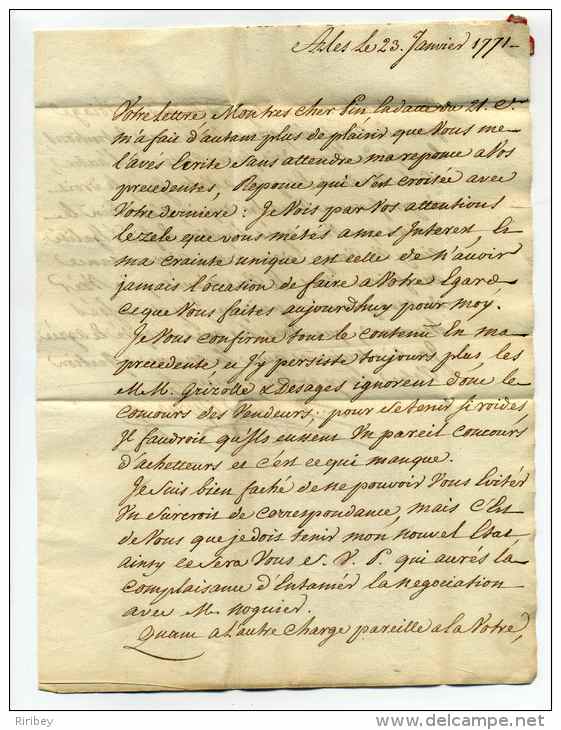 Arles Le 23. Janvier 1771
Votre lettre, Mon tres cher Pin, la datte du 21. Ct.
m'a fait d'autant plus de plaisir que Vous me
l'avés Ecrite Sans attendre ma reponce a Vos
precedentes, Reponce qui s'est croisée avec
Votre derniere : Je Vois par Vos attentions
le zele que vous métés a mes Interest, Et
ma crainte unique est celle de n'avoir
jamais l'ocasion de faire a Votre Egard,
ce que Vous faites aujourd'huy pour moy.
Je Vous confirme tout le contenu En ma
precedente & J'y persiste toujours plus, les
M.M. Grizolle & Desages ignorent donc le
concours des Vendeurs ; pour se tenir si roides
Il faudroit qu'ils eussent Un pareil Concours
d'achetteurs et c'est ce qui manque.
Je suis bien faché de ne pouvoir Vous Evitér
Un surcroit de correspondance, mais C'est
de Vous que je dois tenir mon nouvel Etat
ainsy ce sera Vous S. V. P. qui aurés la
Complaisance d'Entamér la negociation
avec M. noguier.
Quant a L'autre Charge pareille a la Votre,
Riribey
www.delcampe.net